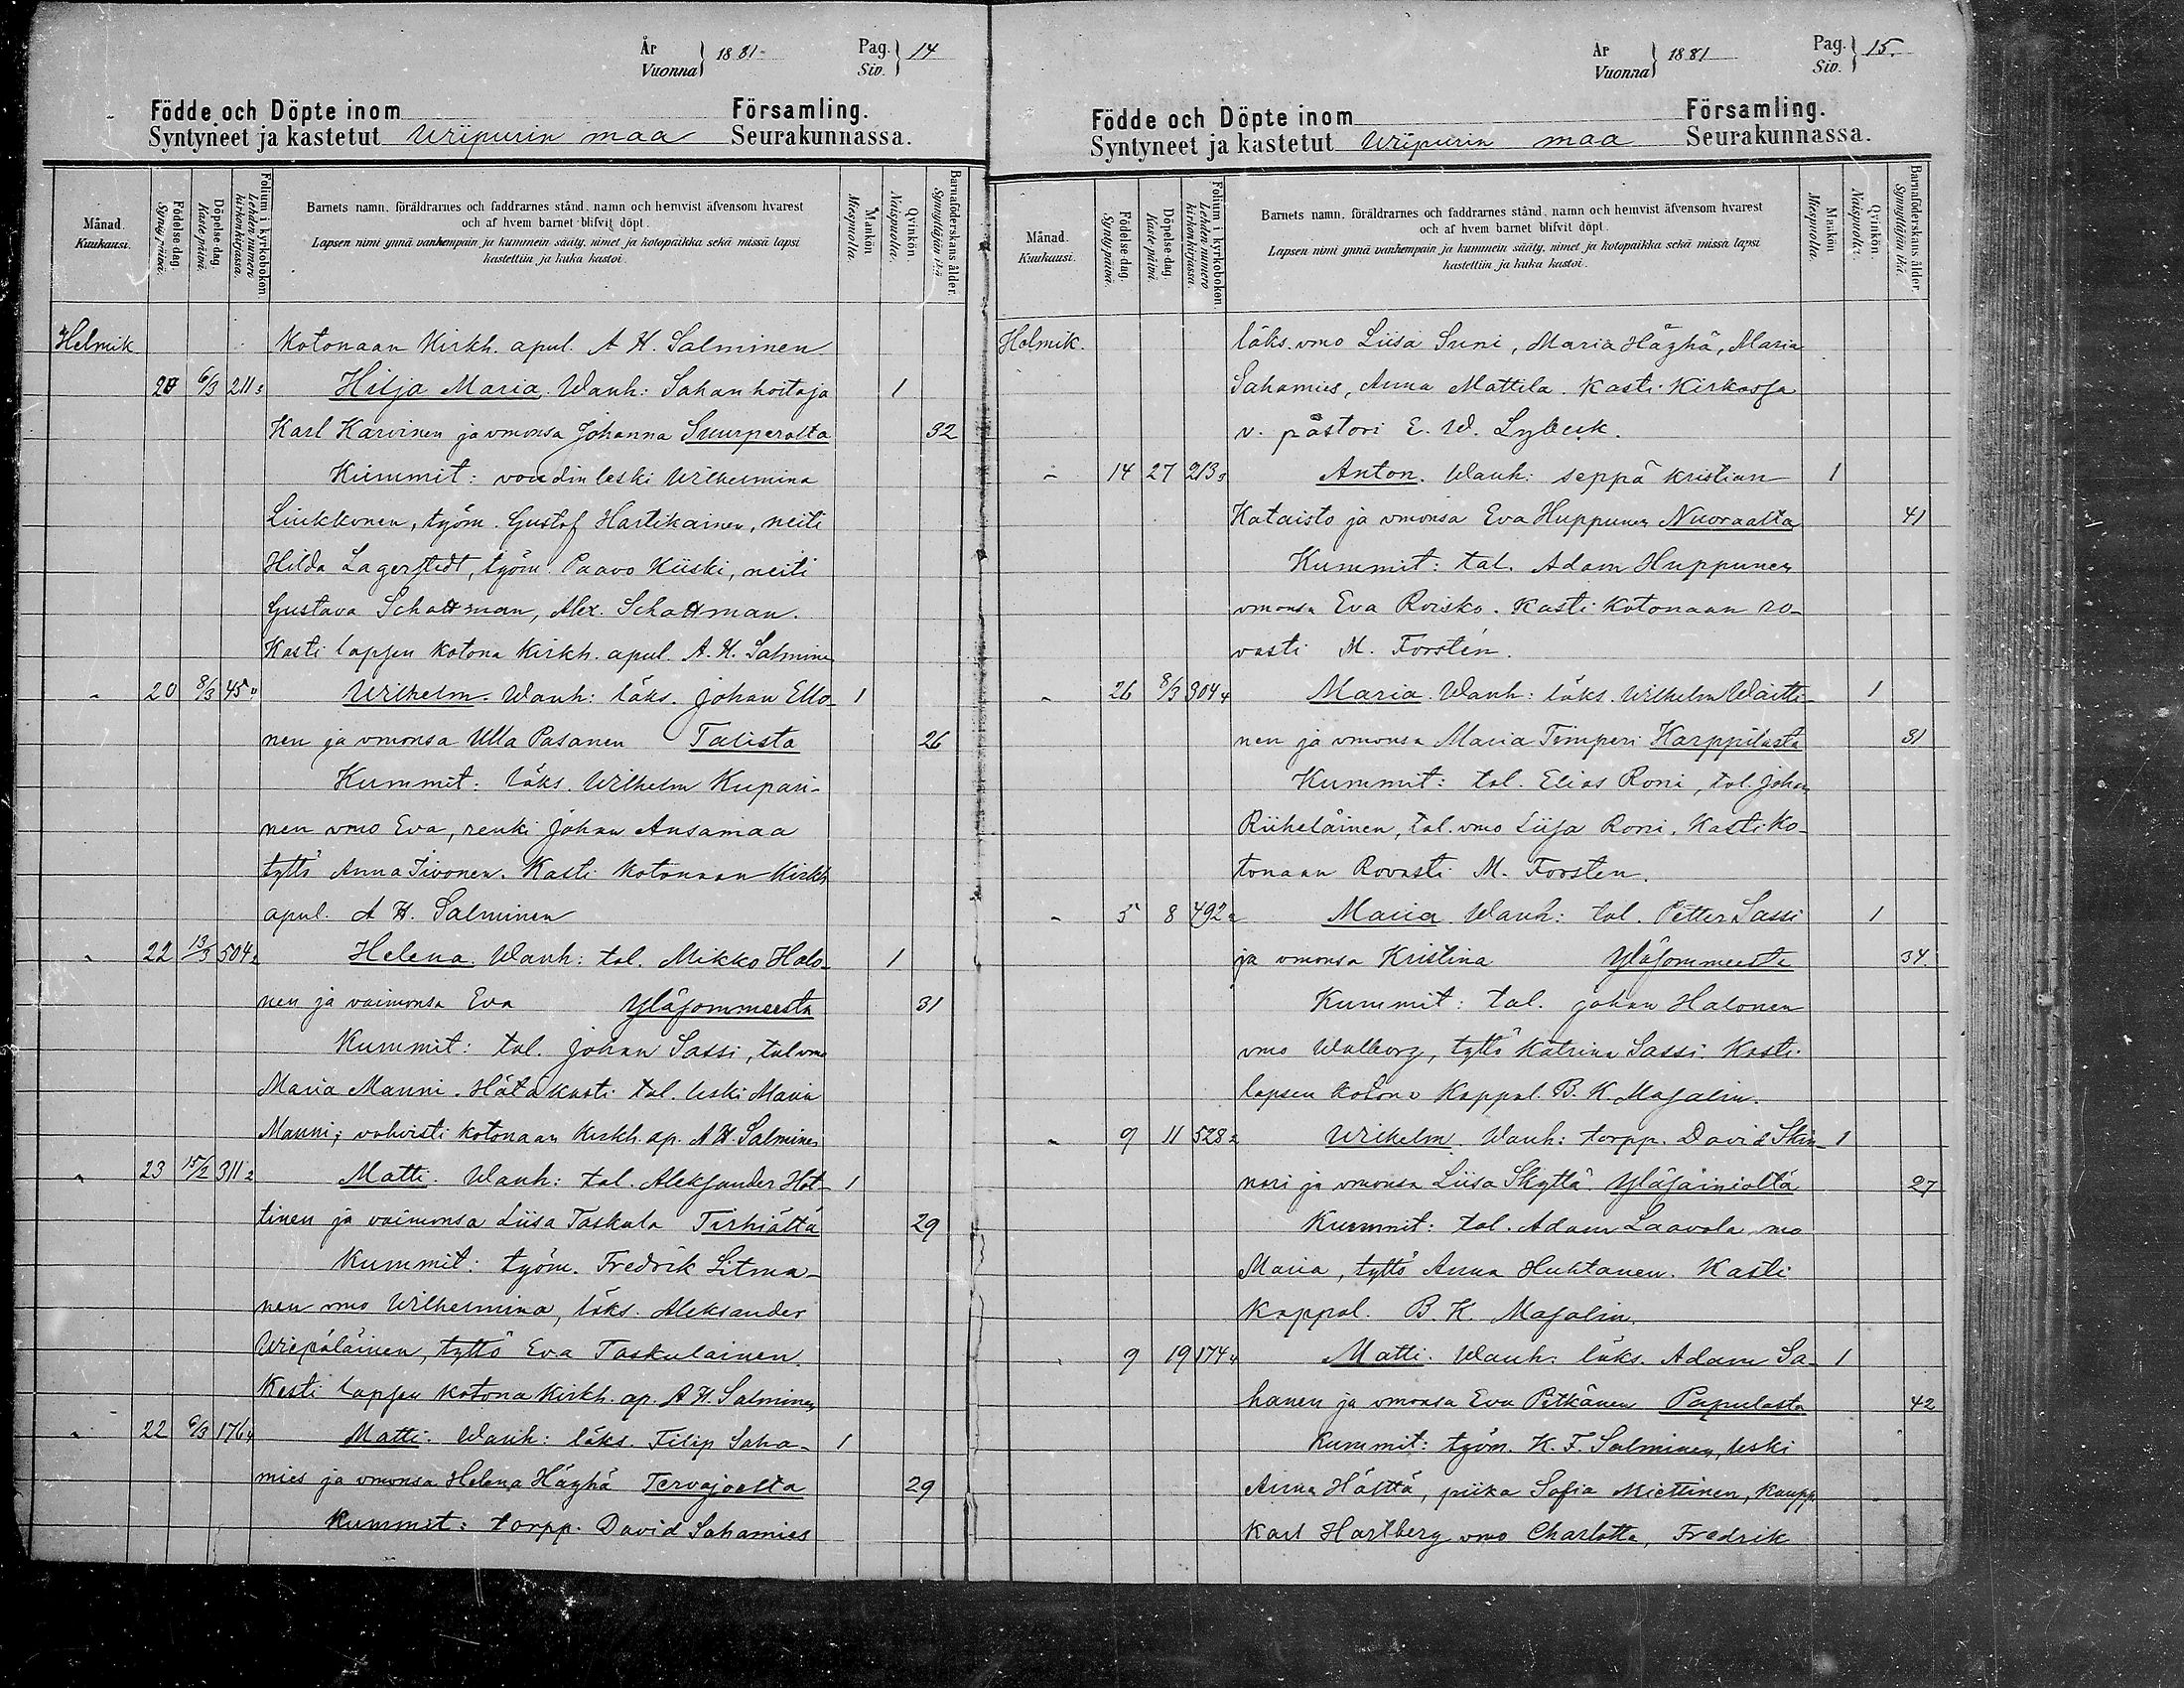 År
Vuonna } 1881 Pag.
Siv. } 14
Födde och Döpte inom Församling.
Syntyneet ja kastetut Wiipurin maa Seurakunnassa.
Månad.
Kuukausi.
Födelse-dag.
Synty päivä.
Döpelse-dag.
Kaste päivä.
Folium i kyrkoboken
Lehden numero
kirkonkirjassa.
Barnets namn, föräldrarnes och faddrarnes stånd, namn och hemvist äfvensom hvarest
och af hvem barnet blifvit döpt.
Lapsen nimi ynnä vanhempain ja kummein sääty, nimet ja kotopaikka sekä missä lapsi
kastettiin ja kuka kastoi.
Mankön
Miespuolta.
Qvinkön.
Naispuolta.
Barnaföderskans ålder.
Synnyttäjän ikä
Helmik Kotonaan Kirkh. apul. A H. Salminen
6/3 211 Hilja Maria. Wanh: Sahan hoitaja 1
Karl Karvinen ja vmonsa Johanna Suurperolta 32
Kummit: voudin leski Wilhelmina
Liukkonen, työm. Gustaf Hartikainen, neiti
Hilda Lagerstedt, työm. Paavo Kiiski, neiti
Gustava Schattman, Alex. Schattman.
Kasti lapsen kotona Kirkh. apul. A. H. Salminen
" 20 8/3 45 Wilhelm. Wanh: läks. Johan Ello- 1
nen ja vmonsa Ulla Pasanen Talista 26
Kummit: läks. Wilhelm Kupari-
nen vmo Eva, renki Johan Ansamaa
tyttö Anna Iivonen. Kasti kotonaan Kirkh
apul. A H. Salminen
" 22 13/3 504 Helena. Wanh: tal. Mikko Halo- 1
nen ja vaimonsa Eva Yläsommeesta 31
Kummit: tal. Johan Sassi, tal vmo
Maria Manni. Hätäkasti tal. leski Maria
Manni; vahvisti kotonaan Kirkh. ap. A H. Salminen
" 23 15/2 311 2 Matti. Wanh: tal. Aleksander Hot- 1
tinen ja vaimonsa Liisa Taskula Tirhiältä 29
Kummit: työm. Fredrik Litma-
nen vmo Wilhelmina, läks. Aleksander
Wiepäläinen, tyttö Eva Taskulainen.
Kasti lapsen kotona Kirkh. ap. A H. Salminen
" 22 6/3 176 4 Matti. Wanh: läks. Filip Saha- 1
mies ja vmonsa Helena Häyhä Tervajoelta 29
Kummit: torpp. David Sahamies
År
Vuonna } 1881 Pag.
Siv. } 15.
Födde och Döpte inom Församling.
Syntyneet ja kastetut Wiipurin maa Seurakunnassa.
Månad.
Kuukausi.
Födelse-dag.
Synty päivä.
Döpelse-dag.
Kaste päivä.
Folium i kyrkoboken
Lehden numero
kirkonkirjassa.
Barnets namn, föräldrarnes och faddrarnes stånd, namn och hemvist äfvensom hvarest
och af hvem barnet blifvit döpt.
Lapsen nimi ynnä vanhempain ja kummein sääty, nimet ja kotopaikka sekä missä lapsi
kastettiin ja kuka kastoi.
Mankön
Miespuolta.
Qvinkön.
Naispuolta.
Barnaföderskans ålder.
Synnyttäjän ikä.
Helmik. läks. vmo Liisa Suni, Maria Häyhä, Maria
Sahamies, Anna Mattila. Kasti Kirkossa
v. pastori E. W. Lybeck.
" 14 27 213 Anton. Wanh: seppä Kristian 1
Kataisto ja vmonsa Eva Huppunen Nuoraalta 41
Kummit: tal. Adam Huppunen
vmonsa Eva Roisko. Kasti kotonaan ro-
vasti M. Forstén.
" 26 8/3 304 4 Maria. Wanh: läks. Wilhelm Waitti- 1
nen ja vmonsa Maria Timperi Karppilasta 31
Kummit: tal. Elias Roni, tal. Johan
Riiheläinen, tal. vmo Liisa Roni. Kasti ko-
tonaan Rovasti M. Forsten.
" 5 8 492 Maria. Wanh: tal. Petter Sassi 1
ja vmonsa Kristina Yläsommeesta 34.
Kummit: tal. Johan Halonen
vmo Walborg, tyttö Katrina Sassi. Kasti
lapsen kotona Kappal. B. K. Masalin.
" 9 11 528 2 Wilhelm. Wanh: torpp. David Skin- 1
nari ja vmonsa Liisa Skyttä. Yläsäiniältä 27
Kummit: tal. Adam Laavola, mo
Maria, tyttö Anna Huhtanen. Kasti
Kappal. B. K. Masalin.
" 9 19 174 4 Matti. Wanh: läks. Adam Sa- 1
hanen ja vmonsa Eva Pitkänen Papulasta 42
Kummit: työm. K. F. Salminen, leski
Anna Hälttä, piika Sofia Miettinen, kaupp.
Karl Hartberg vmo Charlotta, Fredrik